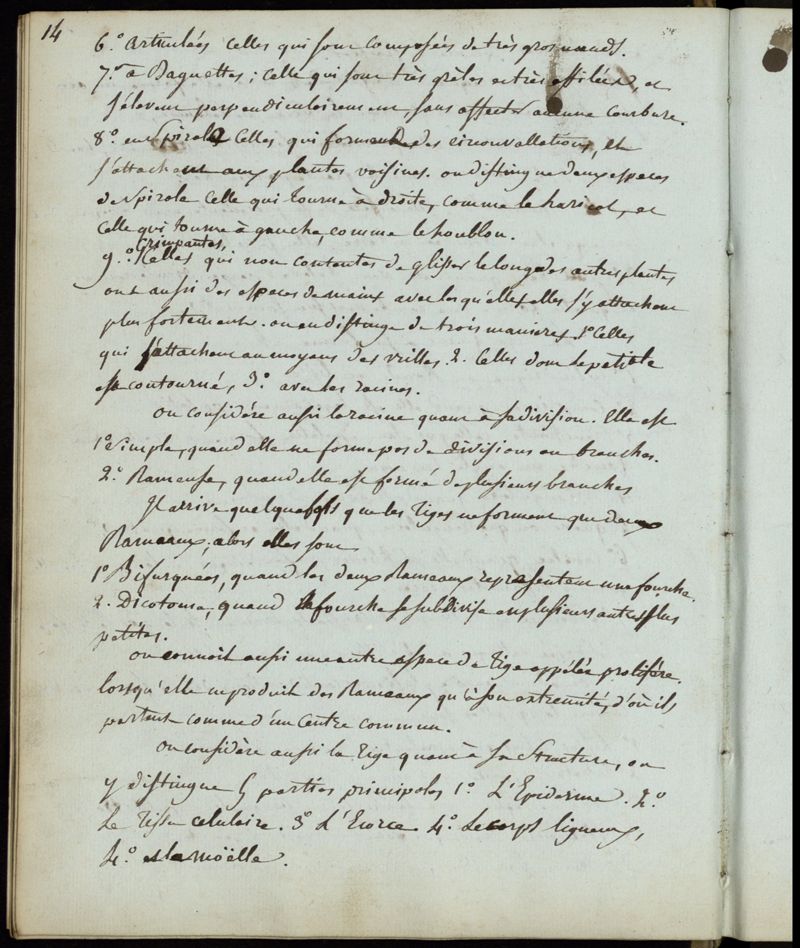 14
6.° articulées celles qui sont composées de très gros nœuds.
7.° a Baguettes; celle qui sont très grêles et très effilées, et
s'élevent perpendiculairement, sans affecter aucune courbure.
8.° en Spirale Celles qui forment des circonvallations, et
s'attachent aux plantes voisines. on distingue deux especes
de Spirale Celle qui tourne à droite, comme le haricot, et
Celle qui tourne à gauche, comme le houblon.
grimpantes,
9.° Celles qui non contentes de glisser le long des autres plantes
ont aussi des especes de mains avec les qu'elles elles s'y attachent
plus fortement. on en distingue de trois manieres 1° Celles
qui s'attachent au moyens des vrilles. 2. Celles dont le petiole
est contourné, 3.° avec les racines.
on considére aussi la racine quant à sa division. Elle est
1° Simple, quand elle ne forme pas de divisions ou branches.
2.° Rameuse, quand elle est formé de plusieurs branches
Il arrive quelquefois que les Tiges ne forment que deux
Rameaux, alors elles sont
1° Bifurquées, quand les deux Rameaux representent une fourche.
2. Dicotome, quand la fourche se subdivise en plusieurs autres plus
petites.
on connoit aussi une autre espece de tige appélée prolifére,
lorsqu'elle ne produit des Rameaux qu'à son extremité, d'où ils
partent comme d'un Centre commun.
on considère aussi la Tige quant à sa Structure, on
y distingue 5 parties principales 1.° L'Epiderme. 2.°
Le Tissu celulaire. 3.° L'Ecorce. 4.° Le corps ligneux,
4.° et la moëlle.